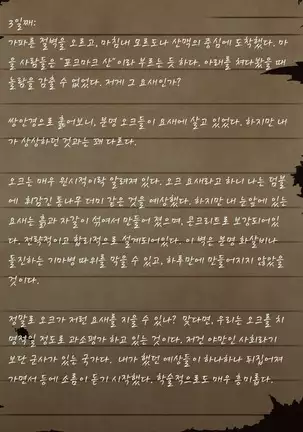 3일째:
가파른 절벽을 오르고, 마침내 모르도나 산맥의 중심에 도착했다. 마
을 사람들은 "포크마크 산"이라 부르는 듯 하다. 아래를 쳐다봤을 때
놀람을 감출 수 없었다. 저게 그 요새인가?
쌍안경으로 훑어보니, 분명 오크들이 요새에 살고 있었다. 하지만 내
가 상상하던 것과는 꽤 다르다.
오크는 매우 원시적이라 알려져 있다. 오크 요새라고 하니 나는 덤불
에 휘감긴 통나무 더미 같은 것을 예상했다. 하지만 내 눈앞에 있는
요새는 흙과 자갈이 섞여서 만들어 졌으며, 콘크리트로 보강되어있
다. 전략적이고 합리적으로 설계되어있다. 이 벽은 분명 화살비나
돌진하는 기마병 따위를 막을 수 있고, 하루만에 만들어지지 않았을
것이다.
정말로 오크가 저런 요새를 지을 수 있나? 맞다면, 우리는 오크를 치
명적일 정도로 과소평가 하고 있는 것이다. 저건 야만인 사회라기
보단 군사가 있는 국가다. 내가 했던 예상들이 하나하나 뒤집어져
가면서 등에 소름이 돋기 시작했다. 학술적으로도 매우 흥미롭다.